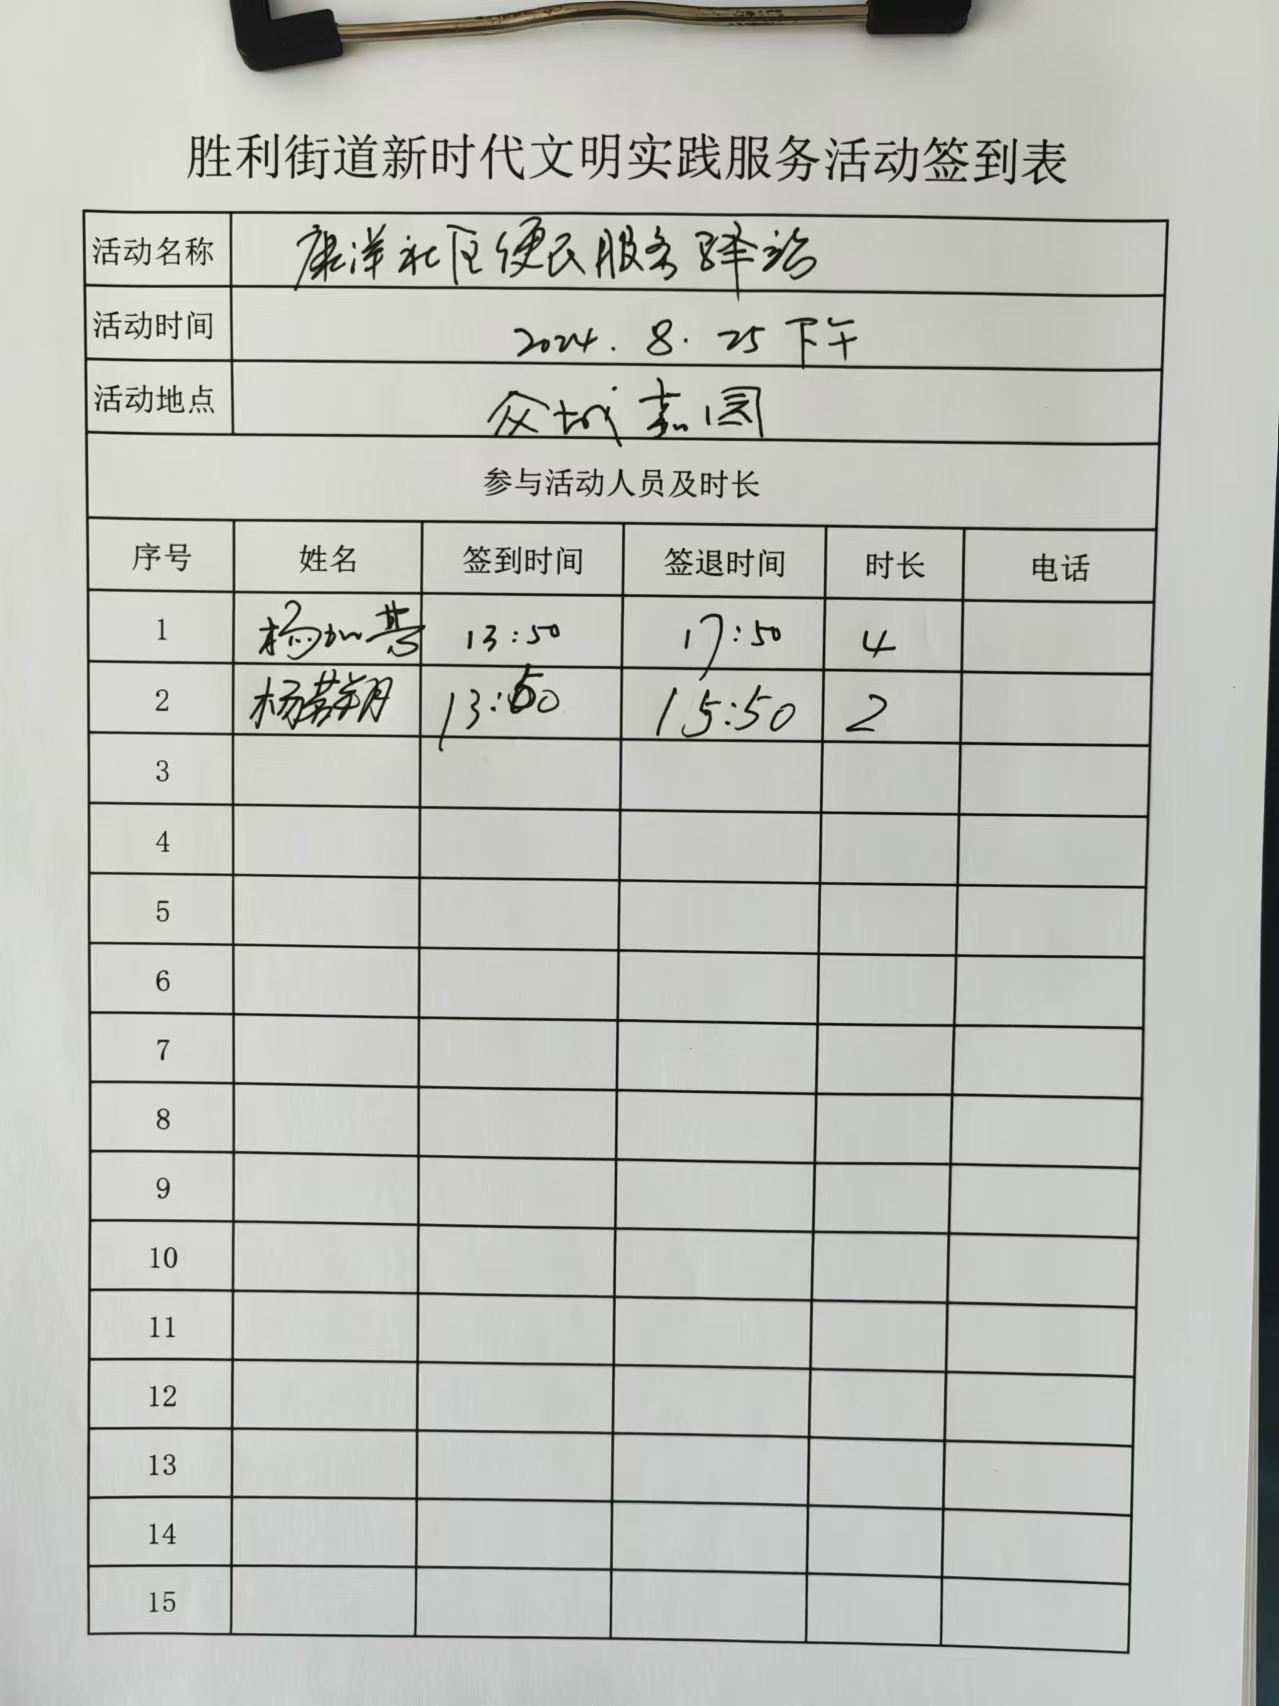 胜利街道新时代文明实践服务活动签到表
活动名称 康洋社区便民服务驿站
活动时间 2024. 8. 25 下午
活动地点 众城嘉园
参与活动人员及时长
序号 姓名 签到时间 签退时间 时长 电话
1 杨 13:50 17:50 4
2 杨若翔 13:50 15:50 2
3
4
5
6
7
8
9
10
11
12
13
14
15